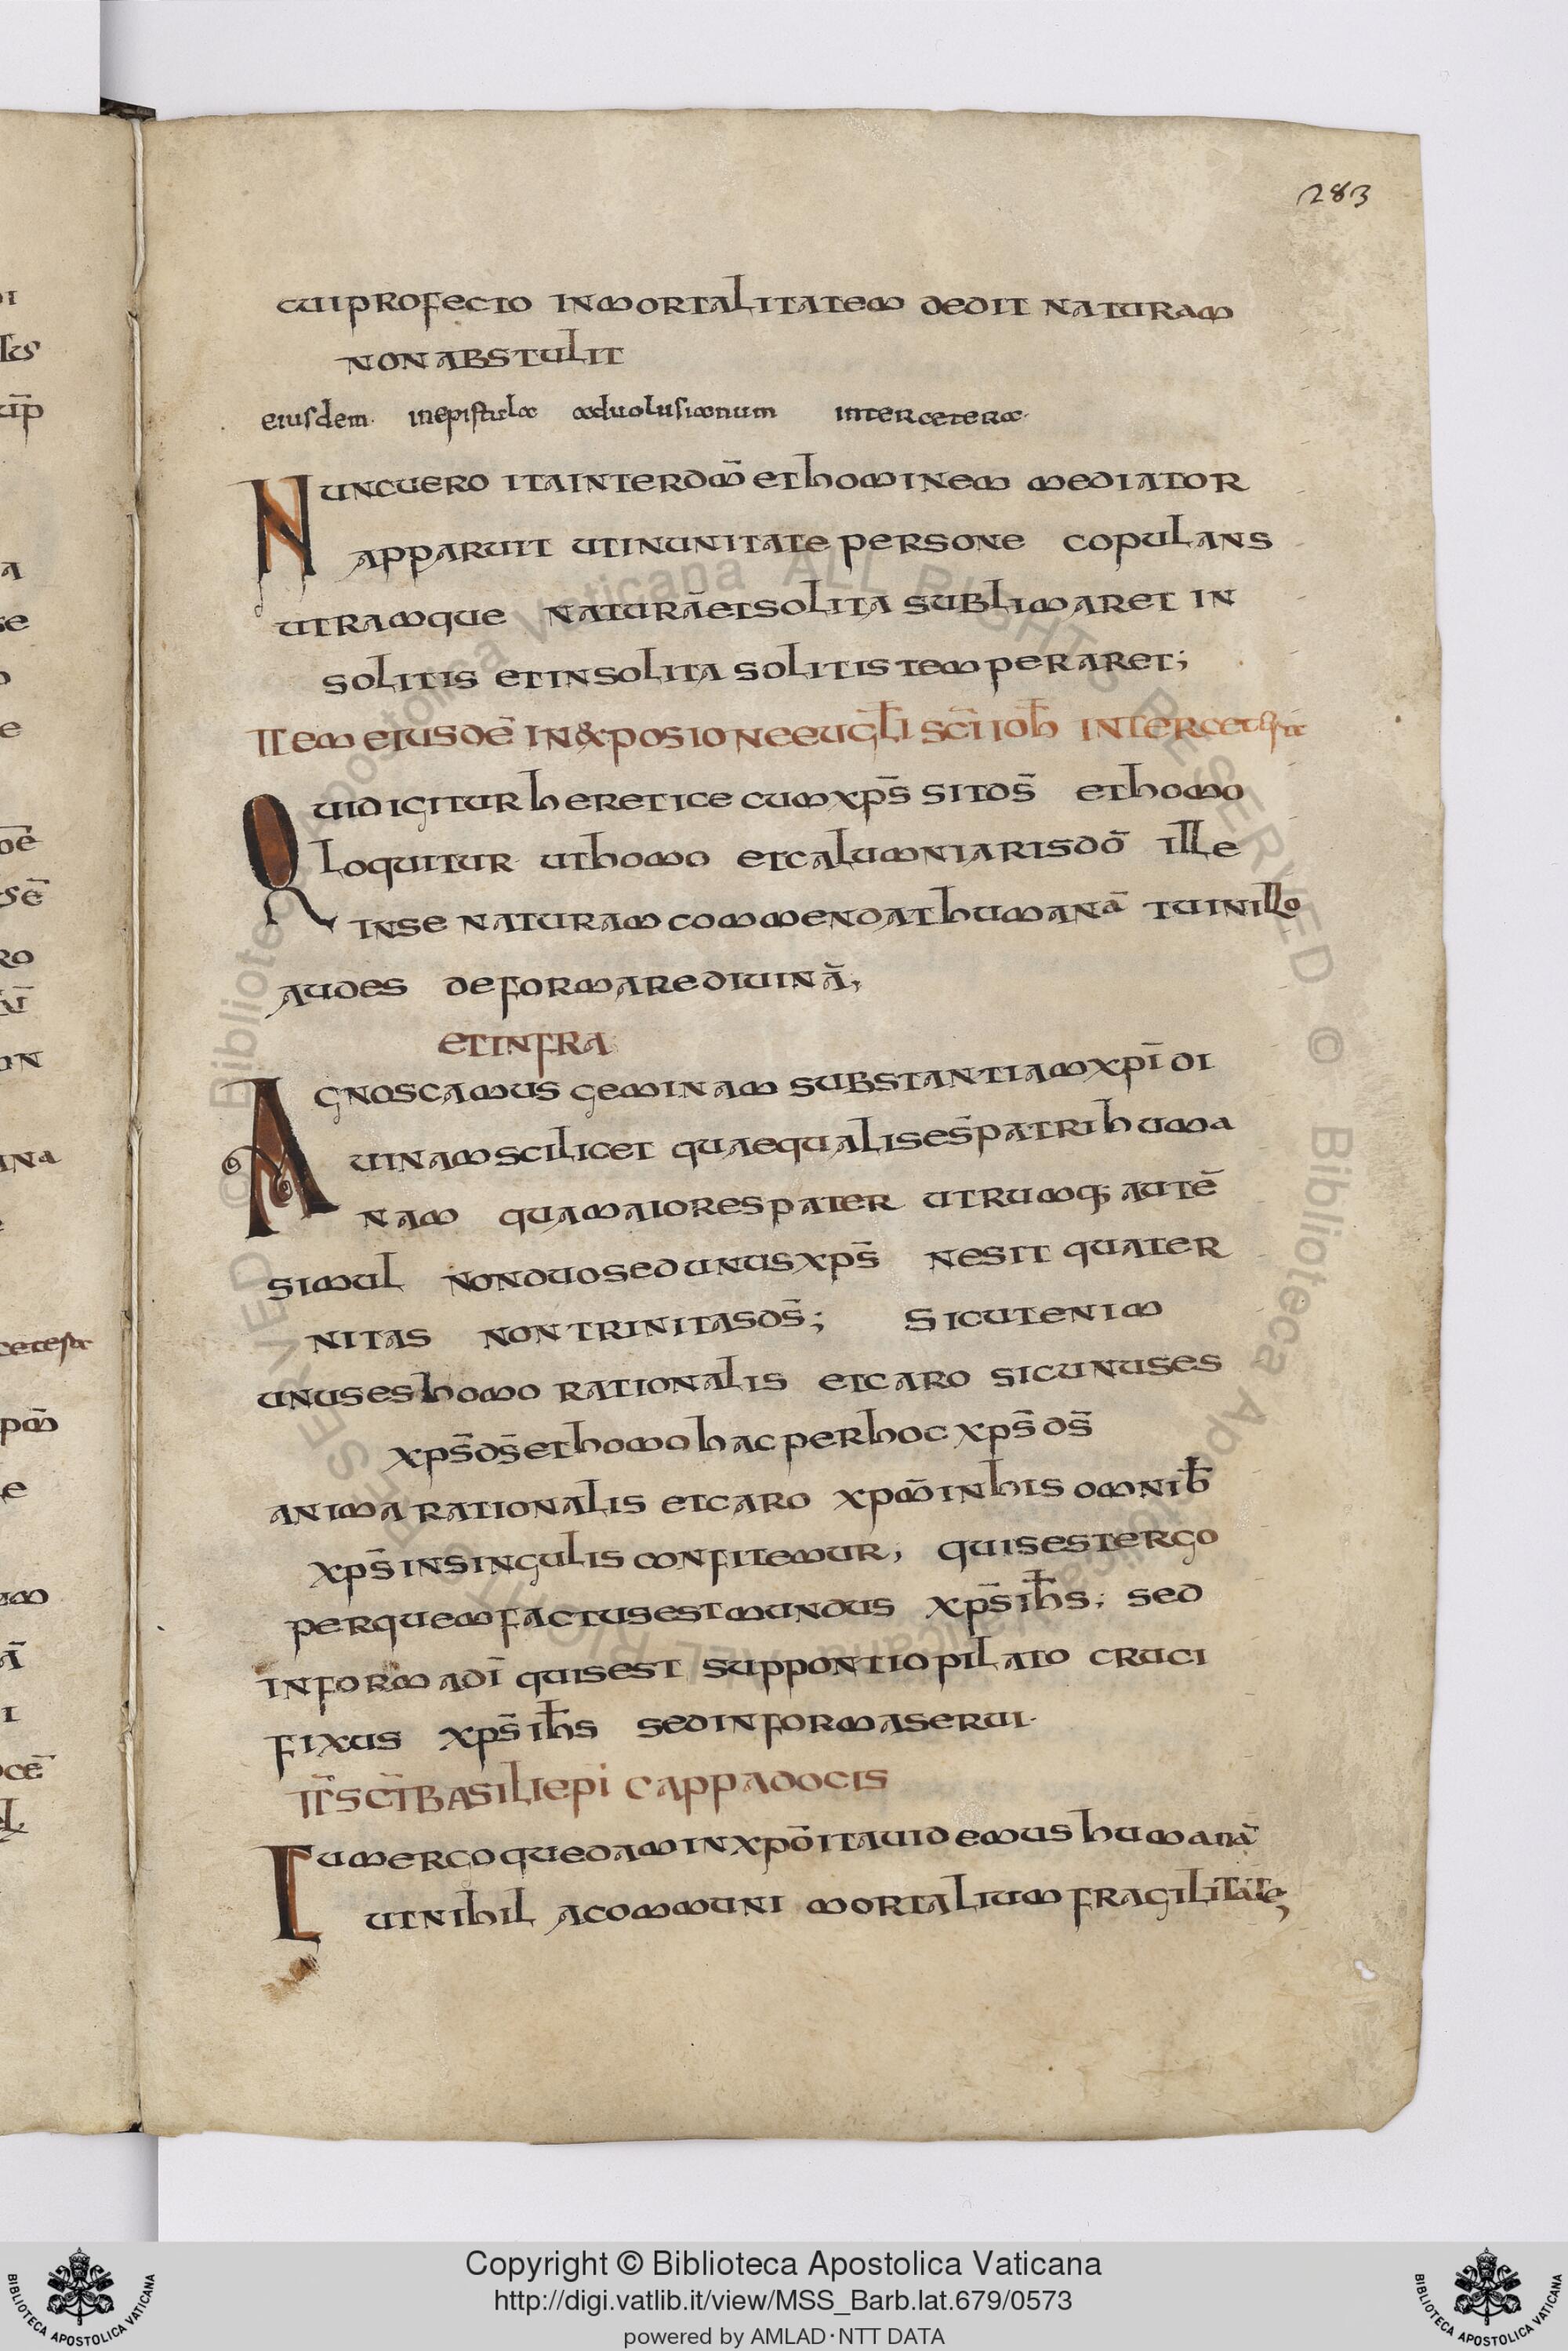 283
cui profecto inmortalitatem dedit naturam
non abstulit
eiusdem in epistula ad uolusianum inter cetera
Nunc uero ita inter dm̄ et hominem mediator
apparuit ut in unitate persone copulans
utramque naturā et solita sublimaret in
solitis et insolita solitis temperaret;
Item eiusdē in exposione eugl̄i sc̄i ioh̄ inter cetera
Quid igitur heretice cum xp̄s sit ds̄ et homo
loquitur ut homo et calumniaris dō ille
in se naturam commendat humanā tu in illo
audes deformare diuinā;
et infra
Agnoscamus geminam substantiam xp̄i di
uinam scilicet qua equalis es̄ patri huma
nam qua maior es pater utrumq; autē
simul non duo sed unus xp̄s ne sit quater
nitas non trinitas ds̄; Sicut enim
unus es homo rationalis et caro sic unus es
xp̄s ds̄ et homo hac per hoc xp̄s ds̄
anima rationalis et caro xp̄m in his omnib̄
xp̄s in singulis confitemur; quis est ergo
per quem factus est mundus xp̄s ih̄s; sed
in forma dī quis est sup pontio pilato cruci
fixus xp̄s ih̄s sed in forma serui.
It̄ sc̄i basili epi cappadocis
Cum ergo quedam in xp̄o ita uidemus humanā
ut nihil a communi mortalium fragilitate
Copyright © Biblioteca Apostolica Vaticana
http://digi.vatlib.it/view/MSS_Barb.lat.679/0573
powered by AMLAD·NTT DATA
BIBLIOTECA APOSTOLICA VATICANA
BIBLIOTECA APOSTOLICA VATICANA